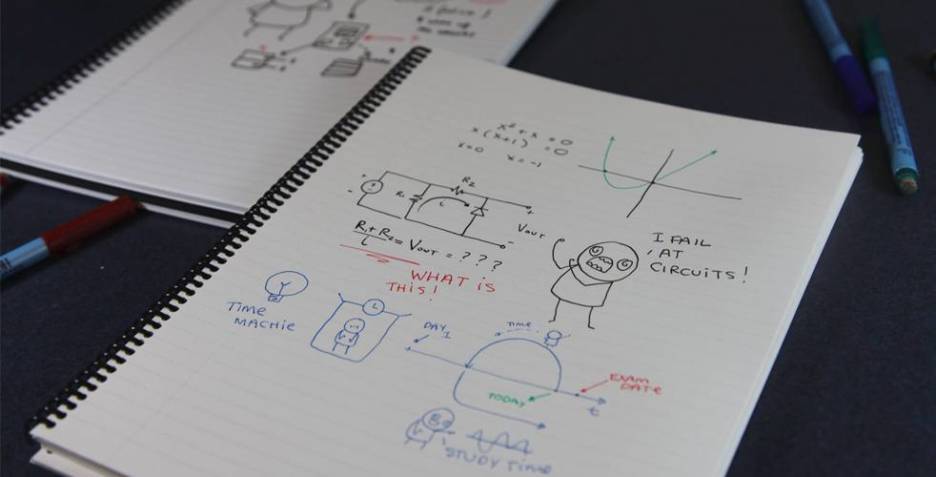 x²+x=0
x(x+1)=0
x=0 x=-1
R₂
R₁
i
+
-
+
-
VOUT
R₁+R₂/i = VOUT = ???
WHAT IS
THIS!
I FAIL
AT
CIRCUITS!
TIME
MACHIE
DAY 1
TIME
EXAM
DATE
TODAY
t
STUDY TIME